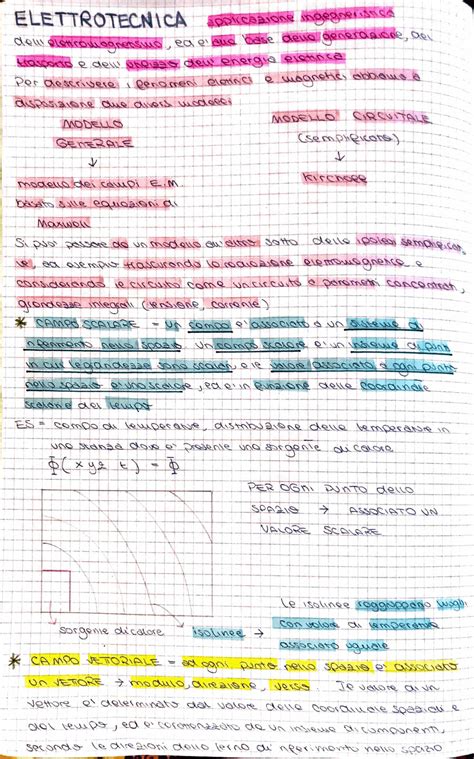 ELETTROTECNICA applicazione ingegneristica
dell'elettromagnetismo, ed e' alla base della generazione, del
trasporto e dell'utilizzo dell'energia elettrica
Per descrivere i fenomeni elettrici e magnetici abbiamo a
disposizione due diversi modelli
MODELLO
GENERALE
↓
modello dei campi E.M.
basato sulle equazioni di
Maxwell
MODELLO CIRCUITALE
(semplificato)
↓
Kirchoff
Si puo' passare da un modello all'altro sotto delle ipotesi semplificati
le, ad esempio trascurando la radiazione elettromagnetica e
considerando il circuito come un circuito a parametri concentrati,
grandezze integrali (tensione, corrente)
* CAMPO SCALARE = un campo e' associato a un sistema di
riferimento nello spazio. un campo scalare e' un insieme di punti
in cui le grandezze sono scalari, e il valore associato a ogni punto
nello spazio e' uno scalare, ed e' in funzione delle coordinate
scalare del tempo
ES = campo di temperature, distribuzione delle temperature in
una stanza dove e' presente una sorgente di calore
Φ(xyz t) = Φ
PER OGNI PUNTO dello
SPAZIO → ASSOCIATO UN
VALORE SCALARE
sorgente di calore
isolinee →
Le isolinee raggruppano luoghi
con valore di temperatura
associato uguale
* CAMPO VETORIALE = ad ogni punto nello spazio e' associato
un VETTORE → modulo, direzione, verso. Il valore di un
vettore e' determinato dal valore delle coordinate spaziali e
dal tempo, ed e' caratterizzato da un insieme di componenti,
secondo le direzioni della terna di riferimento nello spazio